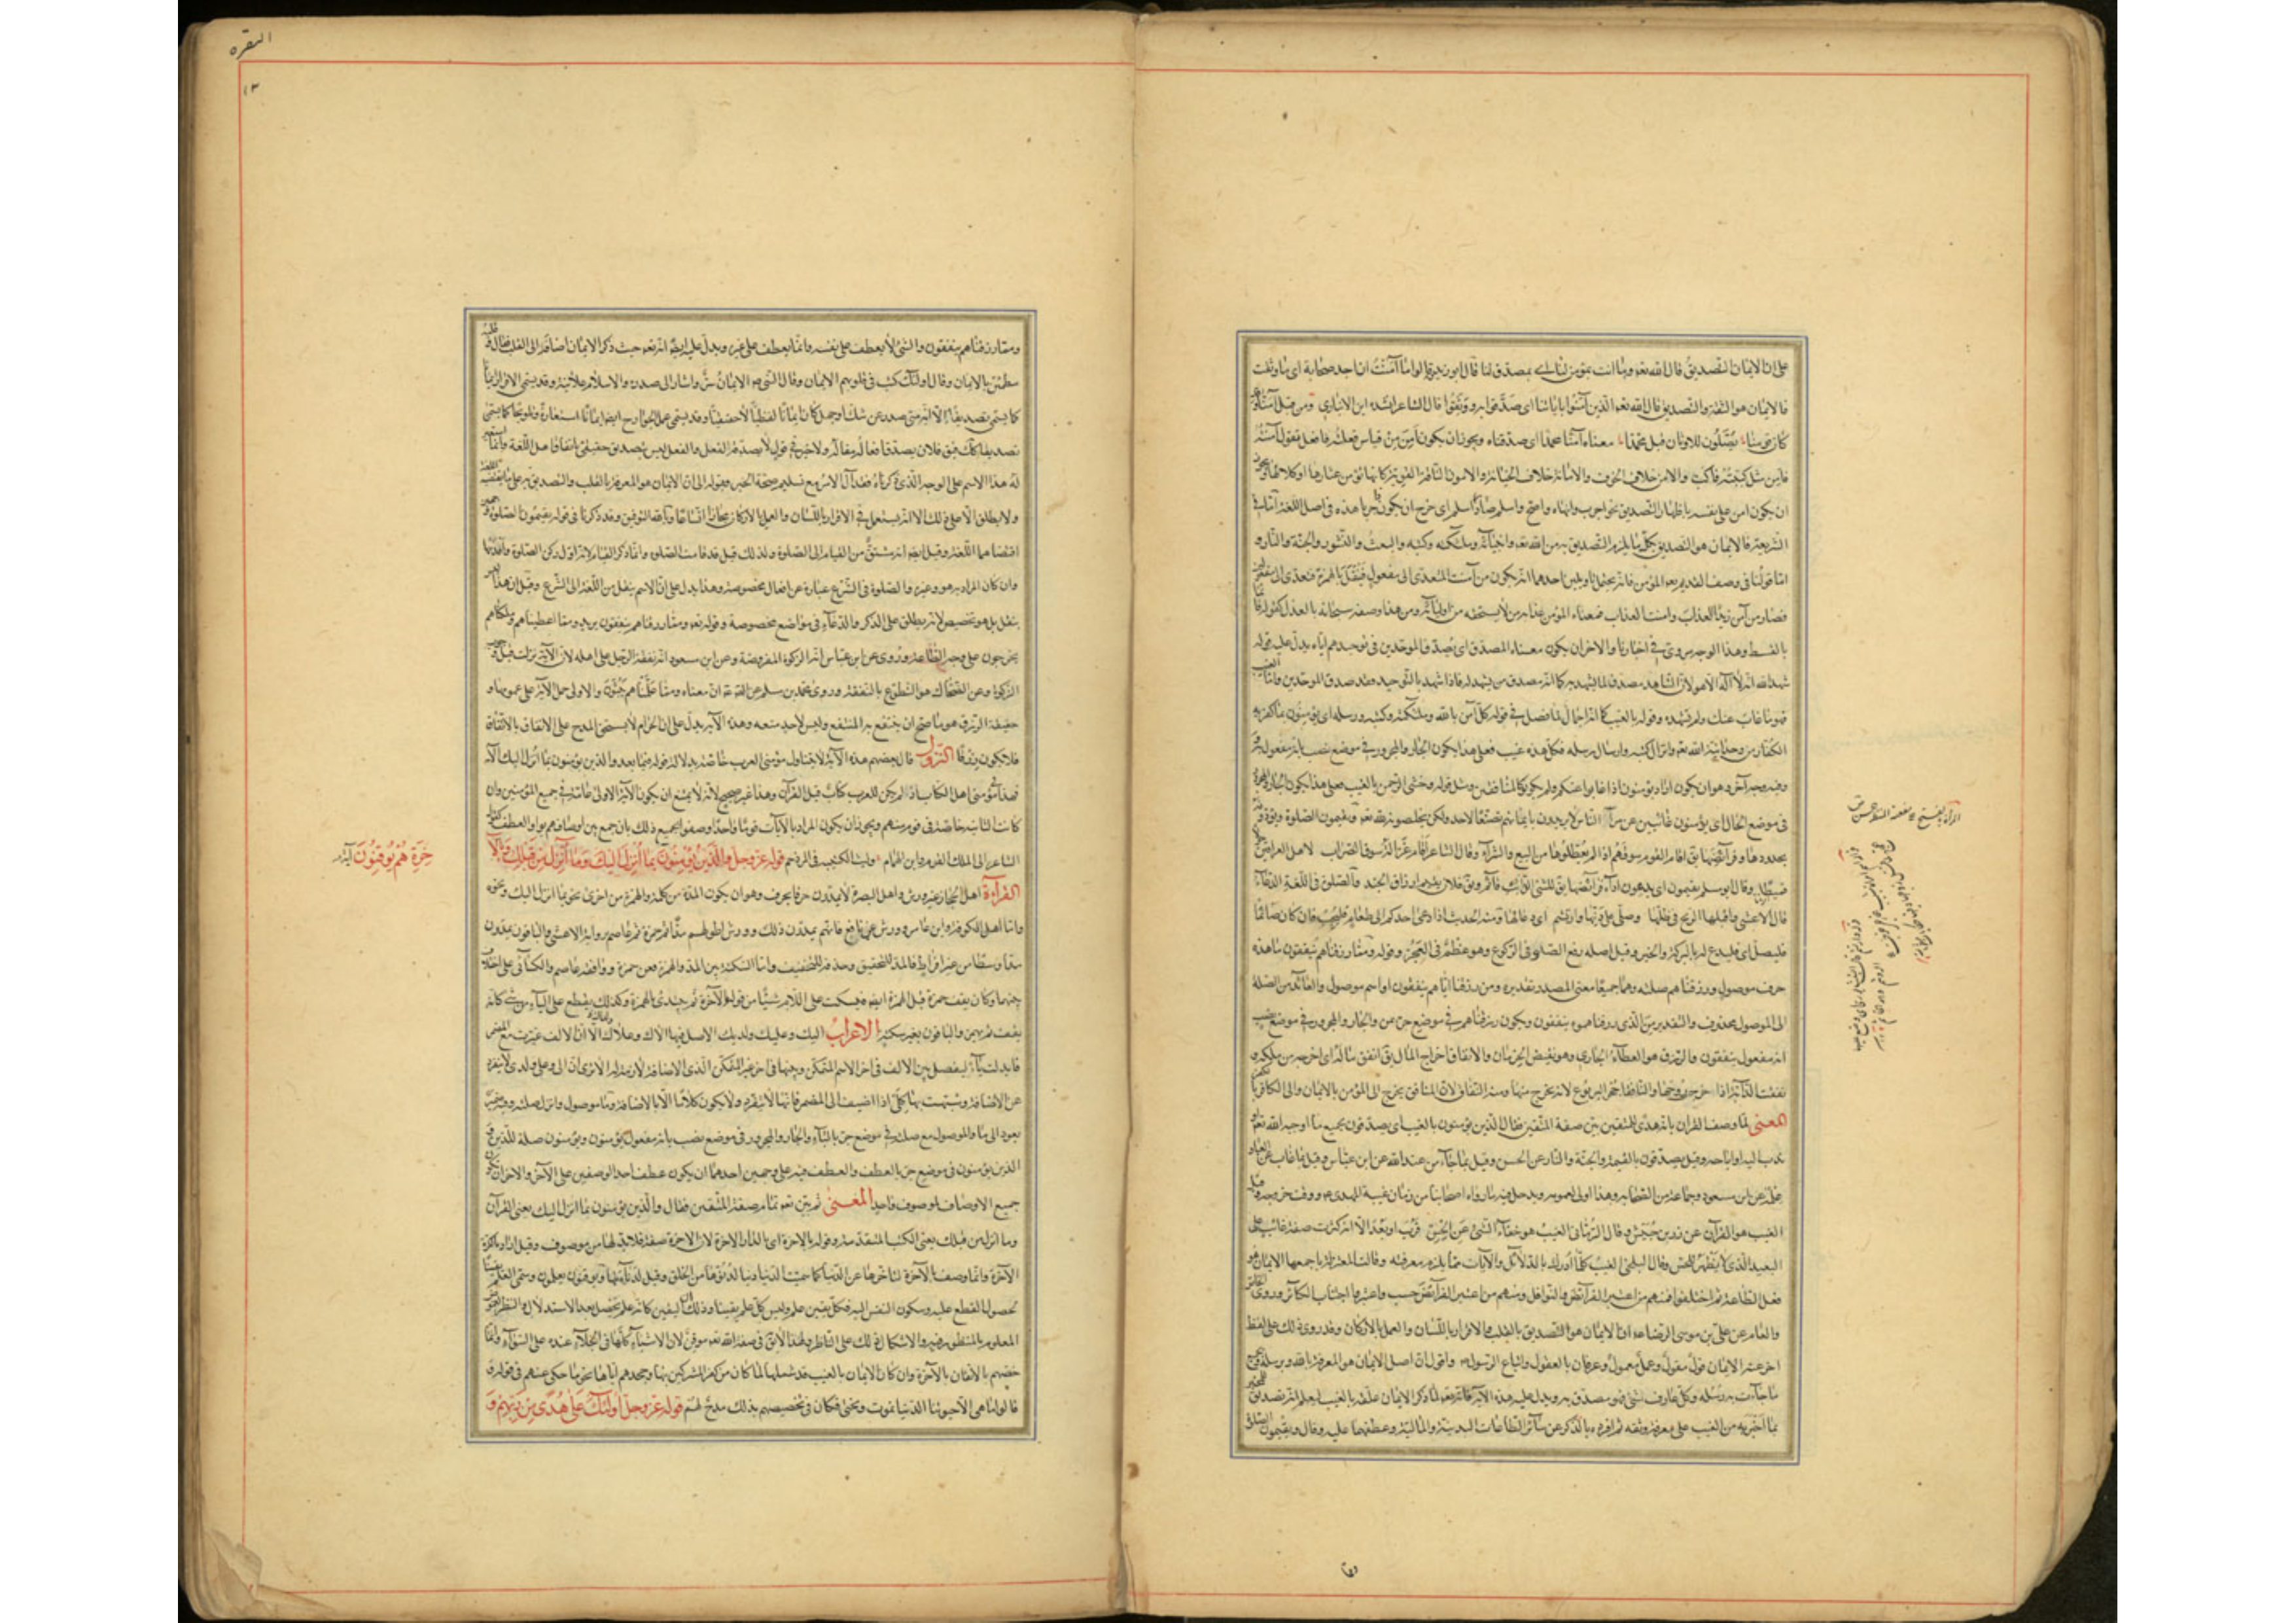 على ان الايمان التصديق قال الله تعه وما انت بمؤمن لنا اى بمصدق لنا قال ابو زيد قالوا ما آمنت ان اجد صحابة اى ما وثقت
فالايمان هو الثقة والتصديق قال الله تعه الذين آمنوا باياتنا اى صدقوا بها ووثقوا قال الشاعر انشده ابن الانبارى ومن قبل آمنا وقد
كان قومنا يصلون للاوثان قبل محمدا معناه آمنا محمدا اى صدقناه ويجوز ان يكون آمن من قياس فعلته فافعل تقول آمنته
فآمن مثل كببته فاكب والامن خلاف الخوف والامانة خلاف الخيانة والامون الناقة القوية كانها
ان يكون امن على نفسه باظهار التصديق نحو اجرب واسلم اى صار ذا سلم اى خرج عن ان يكون حربا هذه فى اصل اللغة اما فى
الشريعة فالايمان هو التصديق بكل ما يلزم التصديق به من الله تعه وانبيآئه وملئكته وكتبه والبعث والنشور والجنة والنار و
اما قولنا فى وصف القديم تعه المؤمن فانه يحتمل تاويلين احدهما انه يكون من آمنت المتعدى الى مفعول فنقل بالهمزة فتعدى الى مفعولين
فصار من آمن زيد العذاب وامنته العذاب فمعناه المؤمن عذابه من لا يستحقه من اوليآئه ومن هذا وصفه سبحانه بالعدل كقوله قائما
بالقسط وهذا الوجه مروى فى اخبارنا والاخر ان يكون معناه المصدق اى يصدق الموحدين فى توحيدهم اياه يدل عليه قوله
شهد الله انه لا اله الا هو لان الشاهد مصدق لما يشهد به كما انه مصدق من يشهد له فاذا شهد بالتوحيد فقد صدق الموحدين واما الغيب
فهو ما غاب عنك ولم تشهده وقوله بالغيب كانه اجمال لما فصل فى قوله كل آمن بالله وملئكته وكتبه ورسله اى يؤمنون بما كفر به
الكفار من وحدانية الله تعه وانزال كتبه وارسال رسله فكل هذه غيب فعلى هذا يكون الجار والمجرور فى موضع نصب بانه مفعول به
وفيه وجه آخر وهو ان يكون اراد يؤمنون اذا غابوا عنكم ولم يكونوا كالمنافقين ومثل قوله وخشى الرحمن بالغيب فعلى هذا يكون الجار والمجرور
فى موضع الحال اى يؤمنون غائبين عن مرآة الناس لا يريدون بايمانهم تصنعا لاحد ولكن يخلصونه لله تعه ويقيمون الصلوة
بحدودها وفرآئضها يق اقام القوم سوقهم اذا لم يعطلوها من البيع والشرآء وقال الشاعر اقامت غزالة سوق الضراب لاهل العراقين
وقال ابو مسلم يقيمون اى يديمون ادآء فرآئضها يق للشئ الراتب قآئم ويق فلان يقيم ارزاق الجند والصلوة فى اللغة الدعآء
قال الاعشى وقابلها الريح فى دنها وصلى على دنها وارتسم اى دعا لها ومنه الحديث اذا دعى احدكم الى طعام فليجب فان كان صائما
فليصل اى فليدع له بالبركة والخير وقيل اصله رفع الصلا فى الركوع وهو عظم فى العجز وقوله ومما رزقناهم ينفقون ما هذه
حرف موصول ورزقناهم صلته وهما جميعا معنى المصدر تقديره ومن رزقنا اياهم ينفقون او اسم موصول والعائد من الصلة
الى الموصول محذوف والتقدير ومن الذى رزقناهموه ينفقون ويكون رزقناهم فى موضع جر بمن والجار والمجرور فى موضع نصب
انه مفعول ينفقون والرزق هو العطآء الجارى وهو نقيض الحرمان والانفاق اخراج المال يق انفق ماله اى اخرجه من ملكه و
نفقت الدآبة اذا خرج روحها والنافقآء جحر اليربوع لانه يخرج منها ومنه النفاق لان المنافق يخرج الى المؤمن بالايمان والى الكافر بالكفر
المعنى لما وصف القران بانه هدى للمتقين بين صفة المتقين فقال الذين يؤمنون بالغيب اى يصدقون بجميع ما اوجبه الله تعه او
ندب اليه او اباحه وقيل يصدقون بالقيمة والجنة والنار عن الحسن وقيل بما جآء من عند الله عن ابن عباس وقيل بما غاب عن العباد
علمه عن ابن مسعود وجماعة من الصحابة وهذا اولى لعمومه ويدخل فيه ما رواه اصحابنا من زمان غيبة المهدى ووقت خروجه وقيل
الغيب هو القرآن عن زر بن حبيش وقال الرمانى الغيب هو خفآء الشئ عن الحس قرب او بعد الا انه كثرت صفة غائب على
البعيد الذى لا يظهر للحس وقال البلخى الغيب كلما ادرك بالدلآئل والآيات مما يلزم معرفته وقالت المعتزلة باجمعها الايمان هو
فعل الطاعة ثم اختلفوا فمنهم من اعتبر الفرآئض والنوافل ومنهم من اعتبر الفرآئض حسب واعتبروا اجتناب الكبآئر وروى الخاص
والعام عن على بن موسى الرضا ان الايمان هو التصديق بالقلب والاقرار باللسان والعمل بالاركان وقد روى ذلك على لفظ
اخر عنه الايمان قول مقول وعمل معمول وعرفان بالعقول واتباع الرسول واقول ان اصل الايمان هو المعرفة بالله وبرسله وبجميع
ما جاءت به رسله وكل عارف بشئ فهو مصدق به ويدل عليه هذه الآية فانه تعه لما ذكر الايمان علقه بالغيب ليعلم انه تصديق للمخبر
بما اخبر به من الغيب على معرفة وثقة ثم افرده بالذكر عن سآئر الطاعات البدنية والمالية وعطفها عليه وقال ويقيمون الصلوة
البقره
١٣
ومما رزقناهم ينفقون والشئ لا يعطف على نفسه وانما يعطف على غيره ويدل عليه ايضا انه تعه حيث ذكر الايمان اضافه الى القلب فقال وقلبه
مطمئن بالايمان وقال اولئك كتب فى قلوبهم الايمان وقال النبى الايمان سر واشار الى صدره والاسلام علانية وقد يسمى الاقرار ايمانا
كما يسمى تصديقا الا انه متى صدر عن شك او جهل كان ايمانا لفظيا لا حقيقيا وقد يسمى عمل الجوارح ايضا ايمانا استعارة وتلويحا كما يسمى
تصديقا كذلك فيق فلان يصدق افعاله مقاله ولا خير فى قول لا يصدقه الفعل والفعل ليس بتصديق حقيقى باتفاق اهل اللغة وانما استعير
له هذا الاسم على الوجه الذى ذكرناه فقد آل الامر مع تسليم صحة الخبر وقبوله الى ان الايمان هو المعرفة بالقلب والتصديق به على ما يقتضيه اللغة
ولا يطلق الا على ذلك الا انه يستعمل فى الاقرار باللسان والعمل بالاركان مجازا واتساعا وبالله التوفيق وقد ذكرنا فى قوله يقيمون الصلوة وجهين
اقتضاهما اللغة وقيل ايضا انه مشتق من القيام الى الصلوة ولذلك قيل قد قامت الصلوة وانما ذكر القيام لانه اول ركن الصلوة وامدها
وان كان المراد به هو وغيره والصلوة فى الشرع عبارة عن افعال مخصوصة وهذا يدل على ان الاسم ينقل من اللغة الى الشرع وقيل ان هذا ليس
بنقل بل هو تخصيص لانه يطلق على الذكر والدعآء فى مواضع مخصوصة وقوله تعه ومما رزقناهم ينفقون يريد ومما اعطيناهم وملكناهم
يخرجون على وجه الطاعة وروى عن ابن عباس انه الزكوة المفروضة وعن ابن مسعود انه نفقة الرجل على اهله لان الآية نزلت قبل وجوب
الزكوة وعن الضحاك هو التطوع بالنفقة وروى محمد بن مسلم عن الصادق ان معناه ومما علمناهم يبثون والاولى حمل الآية على عمومها و
حقيقة الرزق هو ما صح ان ينتفع به المنتفع وليس لاحد منعه وهذه الآية يدل على ان الحرام لا يستحق المدح على الانفاق بالاتفاق
فلا يكون رزقا النزول قال بعضهم هذه الآية لا يتناول مؤمنى العرب خاصة بدلالة قوله فيما بعد والذين يؤمنون بما انزل اليك الآية
فهذا فى مؤمنى اهل الكتاب اذ لم يكن للعرب كتاب قبل القرآن وهذا غير صحيح لانه لا يمتنع ان يكون الآية الاولى عامة فى جميع المؤمنين وان
كانت الثانية خاصة فى قوم منهم ويجوز ان يكون المراد بالآيات قوما واحدا وصفوا بجميع ذلك بان جمع بين اوصافهم بواو العطف كقول
الشاعر الى الملك القرم وابن الهمام وليث الكتيبة فى المزدحم قوله عز وجل والذين يؤمنون بما انزل اليك وما انزل من قبلك وبالآ
خرة هم يوقنون آية
القراءة اهل الحجاز غير ورش واهل البصرة لا يمدون حرفا لحرف وهو ان يكون المدة من كلمة والهمزة من اخرى نحو بما انزل اليك ونحوه
واما اهل الكوفة وابن عامر وورش عن نافع فانهم يمدون ذلك وورش اطولهم مدا ثم حمزة ثم عاصم برواية الاعشى والباقون يمدون
مدا وسطا من غير افراط فالمد للتحقيق وحذفه للتخفيف واما السكتة بين المدة والهمزة فعن حمزة ووافقه عاصم والكسآئى على اختلاف
عنهما وكان يقف حمزة قبل الهمزة ايضا فيسكت على اللام شيئا من قوله الآخرة ثم يبتدئ بالهمزة وكذلك يقطع على اليآء من شئ كانه
يقف ثم يهمز والباقون بغير سكتة الاعراب اليك وعليك ولديك الاصل فيها الاك وعلاك ولداك الا ان الالف غيرت مع المضمر
فابدلت يآء ليفصل بين الالف فى اخر الاسم المتمكن وبينها فى اخر غير المتمكن الذى الاضافة لازمة له الا ترى ان الى وعلى ولدى لا ينفرد
عن الاضافة وشبهت بها كلا اذا اضيفت الى المضمر لانها لا تنفرد ولا يكون كلاما الا بالاضافة وما موصول وانزل صلته وفيه ضمير
يعود الى ما والموصول مع صلته فى موضع جر بالبآء والجار والمجرور فى موضع نصب بانه مفعول يؤمنون ويؤمنون صلة للذين و
الذين يؤمنون فى موضع جر بالعطف والعطف فيه على وجهين احدهما ان يكون عطف احد الوصفين على الآخر والاخر ان يكون
جميع الاوصاف لموصوف واحد المعنى ثم بين تعه تمام صفة المتقين فقال والذين يؤمنون بما انزل اليك يعنى القرآن
وما انزل من قبلك يعنى الكتب المتقدمة وقوله وبالاخرة اى بالدار الاخرة لان الاخرة صفة فلا بد لها من موصوف وقيل اراد بالكرة
الآخرة وانما وصفت بالآخرة لتاخرها عن الدنيا كما سميت الدنيا دنيا لدنوها من الخلق وقيل لدنآئتها ويوقنون يعلمون وسمى العلم يقينا
لحصول القطع عليه وسكون النفس اليه فكل يقين علم وليس كل علم يقينا وذلك ان اليقين كانه علم يحصل بعد الاستدلال والنظر لغموض
المعلوم المنظور فيه والاشكال ذلك على الناظر ولهذا لا يق فى صفة الله تعه موقن لان الاشيآء كلها فى الجلآء عنده على السوآء وانما
خصهم بالايقان بالآخرة وان كان الايمان بالغيب قد شملها لما كان من كفر المشركين بها وجحدهم اياها نحو ما حكى عنهم فى قوله و
قالوا ما هى الا حيوتنا الدنيا نموت ونحيى فكان فى تخصيصهم بذلك مدح لهم قوله عز وجل اولئك على هدى من ربهم و